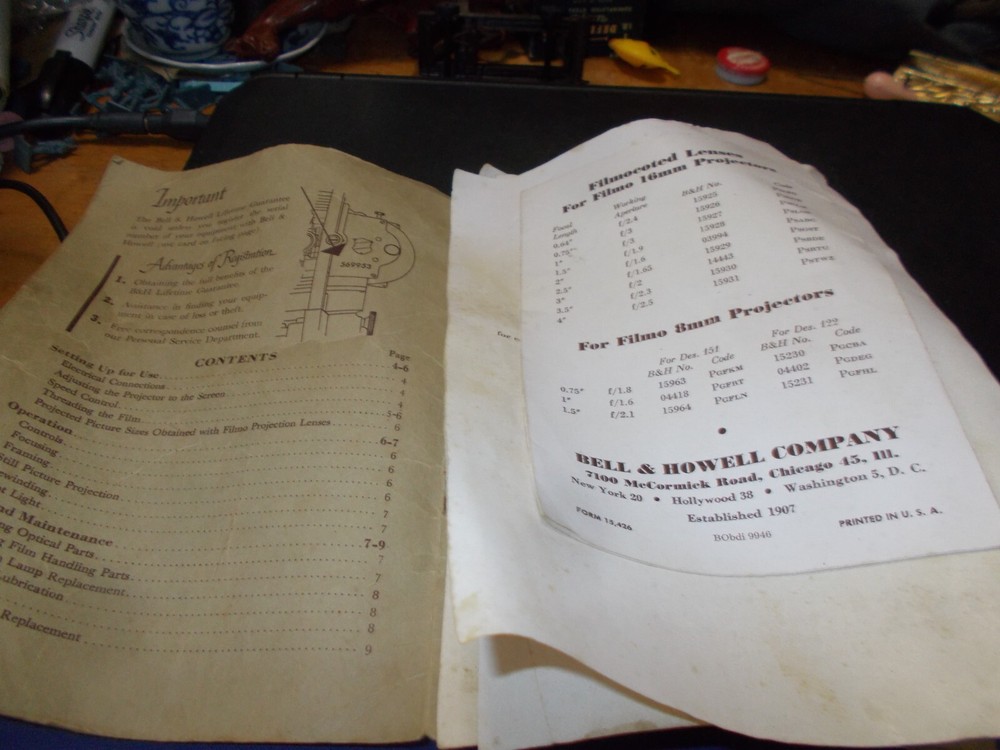 Important
The Bell & Howell Lifetime Guarantee
is void unless you register the serial
number of your equipment with Bell &
Howell (see card on facing page.)
369933
Advantages of Registration
1. Obtaining the full benefits of the
B&H Lifetime Guarantee.
2. Assistance in finding your equip-
ment in case of loss or theft.
3. Free correspondence counsel from
our Personal Service Department.
CONTENTS
Page
Setting Up for Use 4-6
Electrical Connections 4
Adjusting the Projector to the Screen 4
Speed Control 4
Threading the Film 5-6
Projected Picture Sizes Obtained with Filmo Projection Lenses 6
Operation 6-7
Controls 6
Focusing 6
Framing 6
Still Picture Projection 6
ewinding 7
t Light 7
nd Maintenance 7-9
ng Optical Parts 7
g Film Handling Parts 7
Lamp Replacement 8
Lubrication 8
8
Replacement 9
Filmocoted Lenses
For Filmo 16mm Projectors
Focal Length
Working Aperture
B&H No.
Code
0.64" f/2.4 15925
0.75" f/3 15926
1" f/3 15927
1.5" f/1.9 15928
2" f/1.6 03994
2.5" f/1.65 15929
3" f/2 14443
3.5" f/2.3 15930
4" f/2.5 15931
For Filmo 8mm Projectors
For Des. 151
For Des. 122
B&H No. Code B&H No. Code
0.75" f/1.8 15963 PGFKM 15230 PGCBA
1" f/1.6 04418 PGFRT 04402 PGDEG
1.5" f/2.1 15964 PGFLN 15231 PGFHL
BELL & HOWELL COMPANY
7100 McCormick Road, Chicago 45, Ill.
New York 20 • Hollywood 38 • Washington 5, D. C.
Established 1907
FORM 15,426
BObdi 9946
PRINTED IN U. S. A.